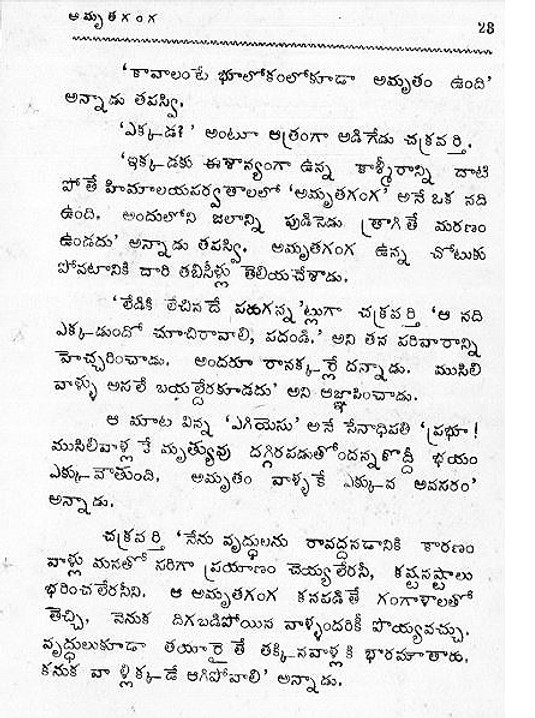 అమృతగంగ
23
'కావాలంటే భూలోకంలోకూడా అమృతం ఉంది'
అన్నాడు తపస్వి.
'ఎక్కడ?' అంటూ ఆత్రంగా అడిగేడు చక్రవర్తి.
'ఇక్కడకు ఈశాన్యంగా ఉన్న కాశ్మీరాన్ని దాటి
పోతే హిమాలయపర్వతాలలో 'అమృతగంగ' అనే ఒక నది
ఉంది. అందులోని జలాన్ని పుడిసెడు త్రాగితే మరణం
ఉండదు' అన్నాడు తపస్వి. అమృతగంగ ఉన్న చోటుకు
పోవటానికి దారి తబిసీళ్లు తెలియచేశాడు.
'లేడికి లేచినదే పరుగన్న'ట్లుగా చక్రవర్తి 'ఆ నది
ఎక్కడుందో చూచిరావాలి, పదండి.' అని తన పరివారాన్ని
హెచ్చరించాడు. అందరూ రానక్కర్లేదన్నాడు. ముసిలి
వాళ్ళు అసలే బయల్దేరకూడదు' అని ఆజ్ఞాసించాడు.
ఆ మాట విన్న 'ఎగియెసు' అనే సేనాధిపతి 'ప్రభూ!
ముసిలివాళ్లకే మృత్యువు దగ్గిరపడుతోందన్నకొద్దీ భయం
ఎక్కువౌతుంది. అమృతం వాళ్ళకే ఎక్కువ అవసరం'
అన్నాడు.
చక్రవర్తి 'నేను వృద్ధులను రావద్దనడానికి కారణం
వాళ్లు మనతో సరిగా ప్రయాణం చెయ్యలేరనీ, కష్టనష్టాలు
భరించలేరనీని. ఆ అమృతగంగ కనపడితే గంగాళాలతో
తెచ్చి, వెనుక దిగబడిపోయిన వాళ్ళందరికీ పొయ్యవచ్చు.
వృద్ధులుకూడా తయారైతే తక్కినవాళ్లకి భారమౌతారు.
కనుక వాళ్లిక్కడే ఆగిపోవాలి' అన్నాడు.